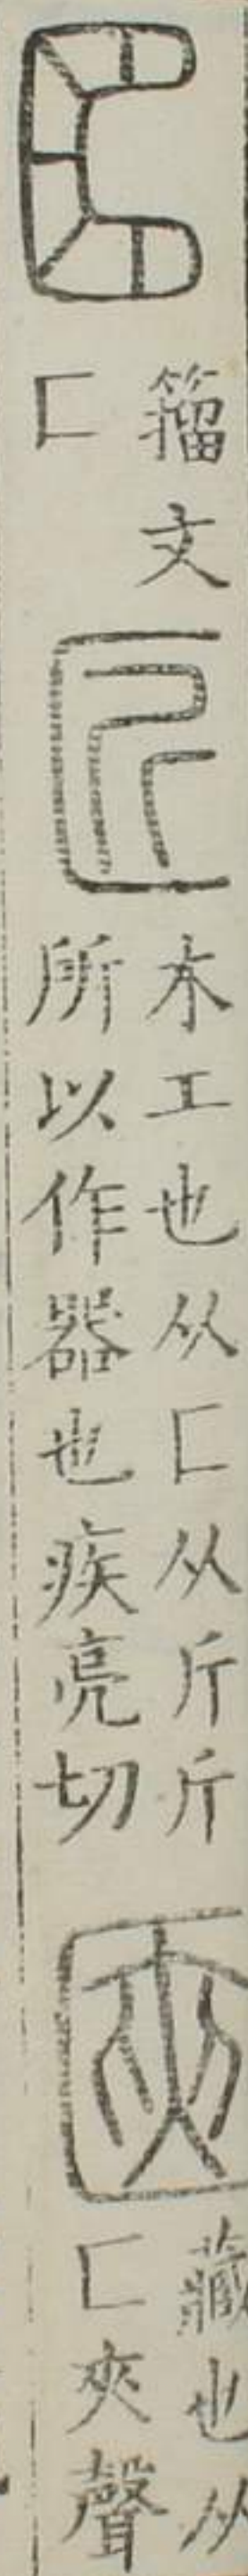 籀文
匚
匠
木工也从匚从斤斤
所以作器也疾亮切
医
藏也从
匚夾聲